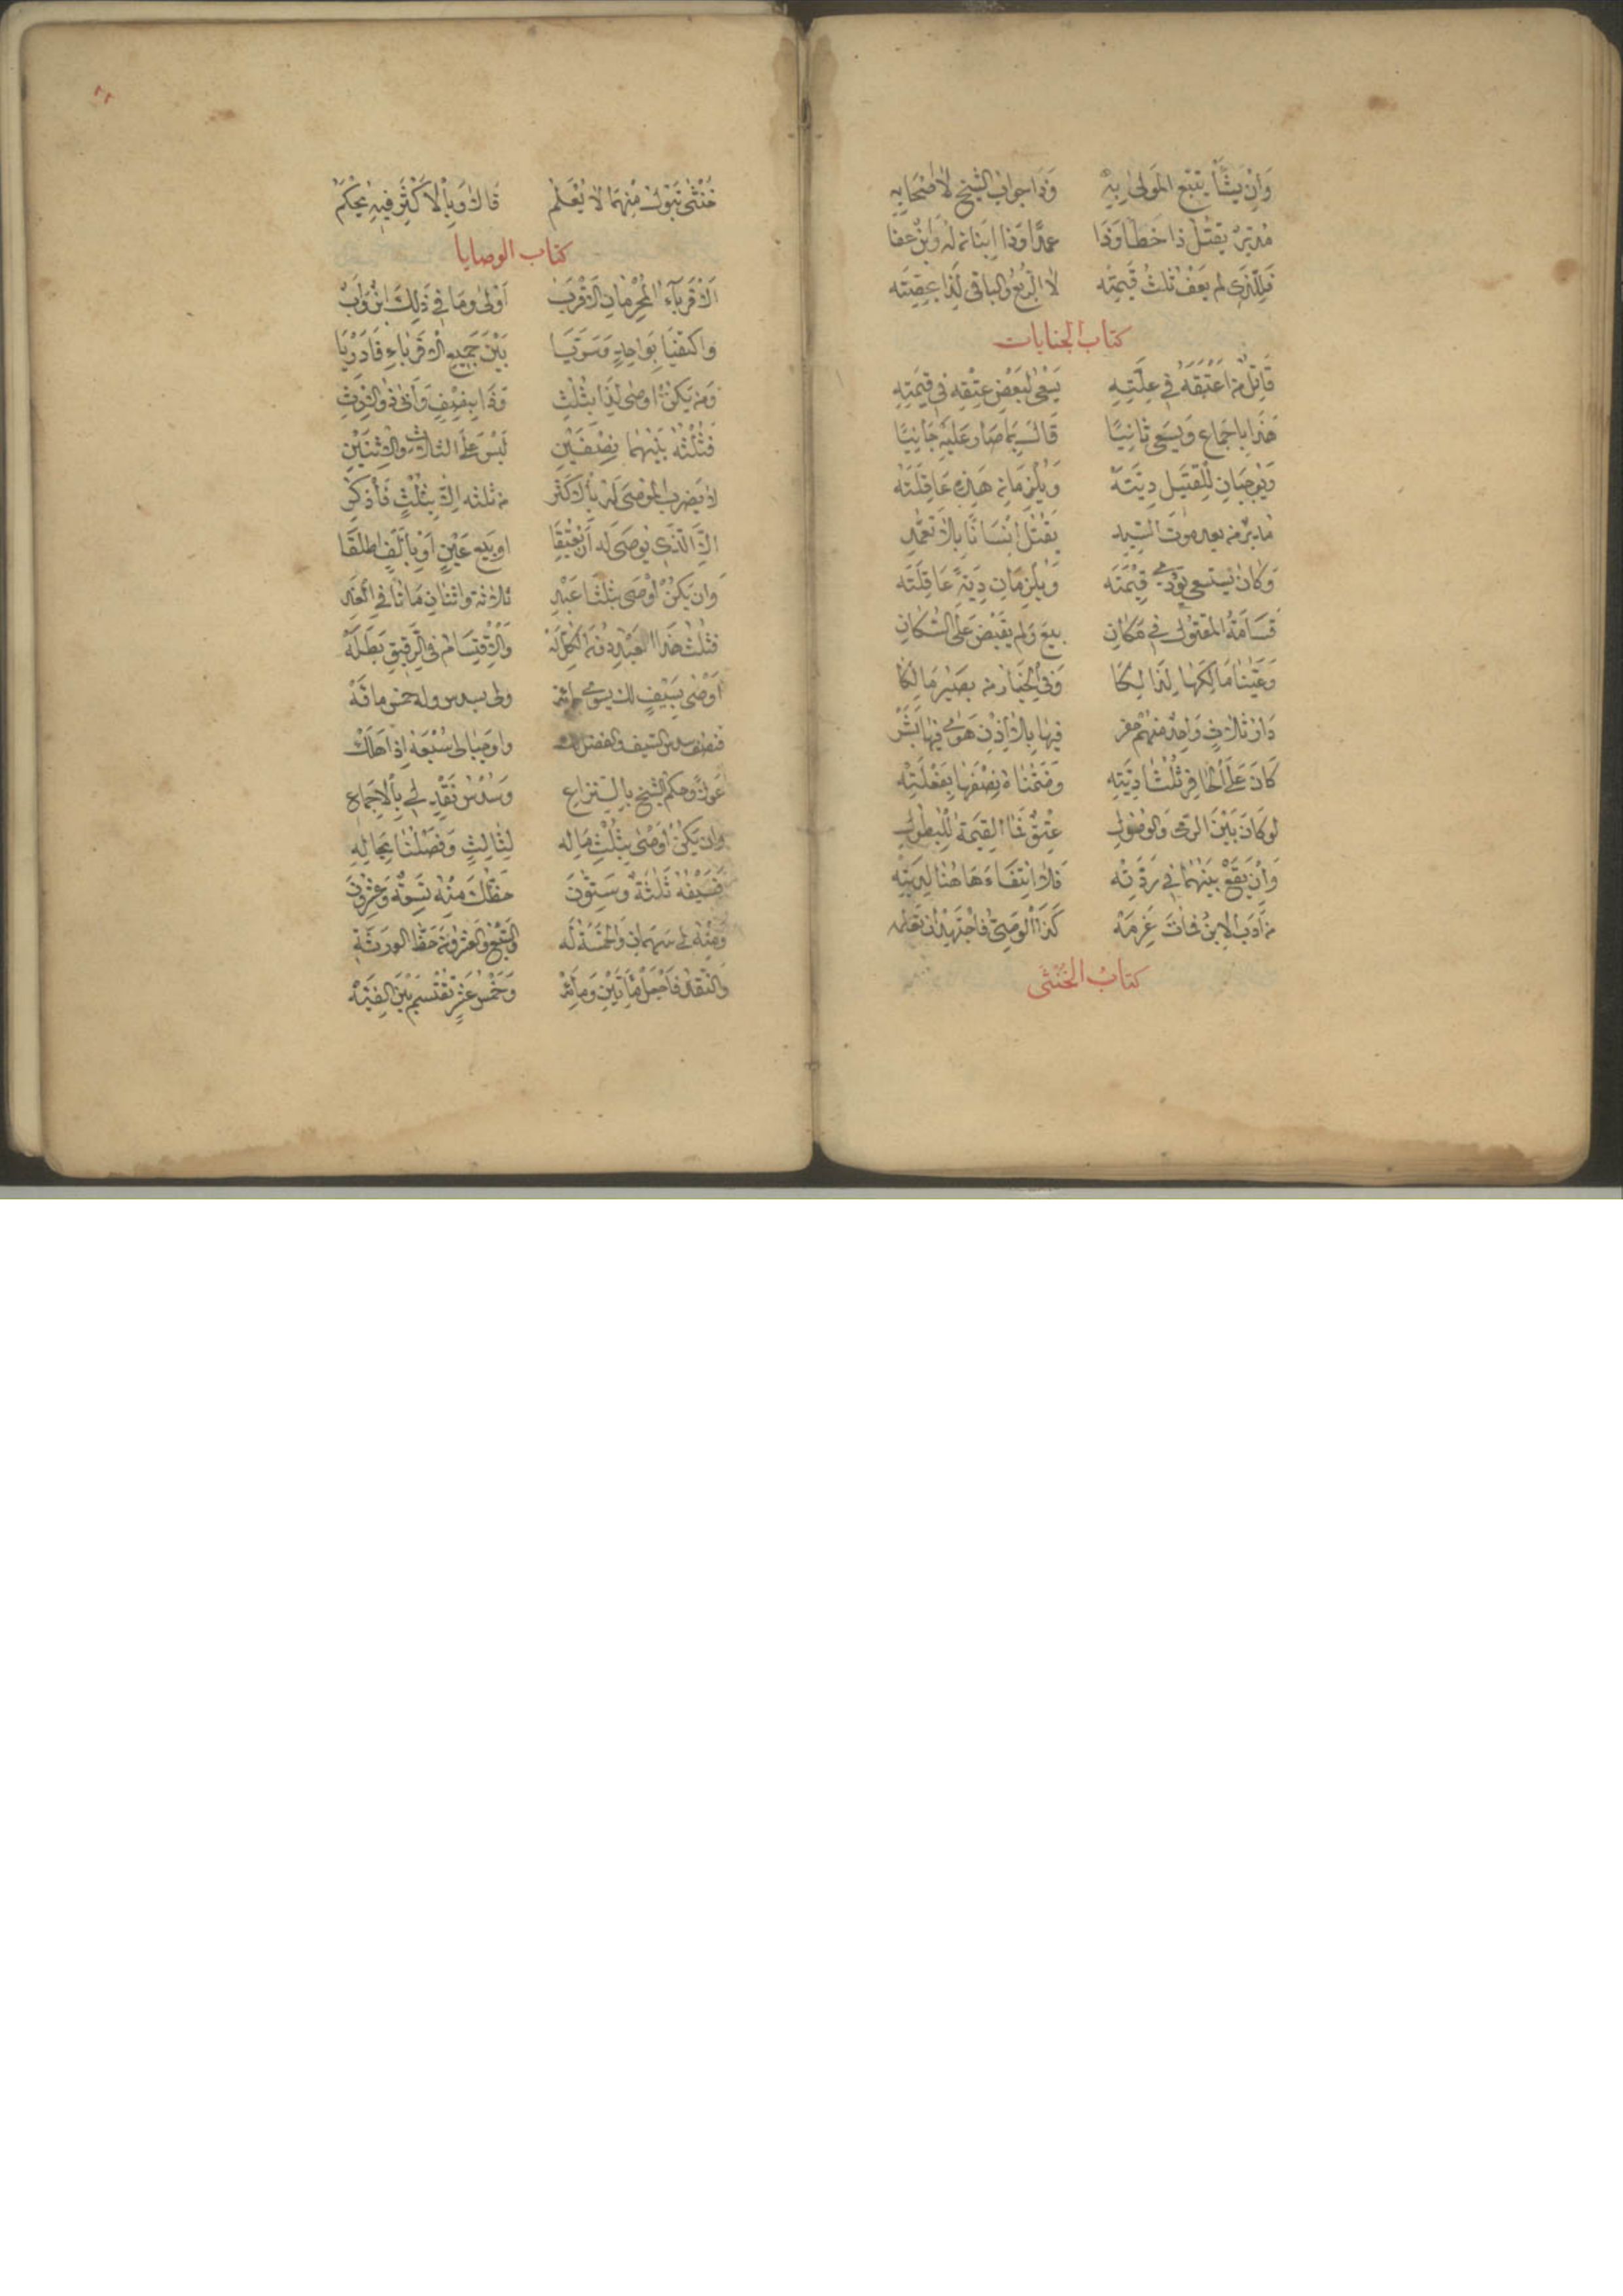 وَاِنْ يَشَأْ يَتْبَعِ المَولىٰ بِهِ وَذَا جوابُ الشَّيخِ لاَصْحَابِهِ
مُدَبَّرٌ يَقتُلُ ذَا خَطَاً وَذَا عمدًا وَذا ابنانِ لَهُ وَابنٌ عفا
فَلِلَّذى لم يَعفُ ثُلثُ قِيمَتِه لا الرُّبعُ والباقى لِذَا بحصَّتِه
كتابُ الجنايات
قَاتِلُ مَنْ اَعْتَقَهُ فِى عِلَّتِهِ يَسْعىٰ لِبَعْضِ عِتْقِهِ فى قِيمَتِهِ
هٰذَا بِاِجْمَاعٍ وَيَسعىٰ ثانِيًا قَالَ بِمَا صَارَ عَلَيْهِ جَانِيًا
وَيُوجِبَانِ لِلْقَتِيلِ دِيَتَهْ وَيُلْزِمَانِ هٰذِهِ عَاقِلَتَهْ
مدبرٌ من بعدِ موتِ السَّيِّدِ يَقتُلُ اِنْسَانًا بِلاَ تَعَمُّدِ
وَكَانَ يَستسعى يُؤَدِّى قِيْمَتَه وَيُلزِمَانِ دِيَةً عَاقِلَتَه
قَسَامَةُ المقتولِ فى مَكَانِ بِيعَ وَلَم يُقْبَضْ عَلَى السُّكَّانِ
وَعَيَّنَا مَالِكَهَا لِذٰلِكَا وَفى الخِيَارِ مَن يَصيرُ مَالِكًا
دَارُ ثَلاَثٍ وَاحِدٌ مِنْهُمْ حَفَر فِيهَا بِلاَ اِذْنٍ هَوىٰ فِيهَا بَشَرْ
كَانَ عَلَى الحَافِرِ ثُلْثَا دِيَتِه وَضَمَّنَاهُ نِصْفَهَا بِفَعْلَتِهْ
لو كَانَ بَيْنَ الرَّمىِ وَالوُصُولِ عِتْقٌ فَقَا القِيمَةُ لِلْبُطُولِ
وَاِنْ يَقَعْ بَيْنَهُمَا فى رِدَّتِهْ فَلاَ انْتِفَاءَ هَاهُنَا لِدِيَتِهْ
مَن اَدَّبَ الاِبنَ فَمَاتَ غَرِمَهْ كَذَا الْوَصِىُّ فَاجْتَهِدْ اَن تَعْلَمَه
كتابُ الخُنْثَى
خُنْثٰى تَبُولُ مِنْهُمَا لاَ يُعْلَم قَالَ وَبِالاَكْثَرِ فِيهِ يُحْكَمُ
كتاب الوصايا
اَلاَقْرِبَآءُ المُحْرِمَانِ الاَقْرَبُ اَوْلىٰ وَمَا فى ذٰلِكَ ابْنٌ وَابُ
وَاكتَفَيَا بِوَاحِدٍ وَسَوَّيَا بَيْنَ جَمِيعِ الاَقْرِبَاءِ فَادْرِيَا
وَمَن يَكُنْ اوصىٰ لِذَا بِثُلْثِ وَذَا بِنِصْفٍ وَاَبىٰ ذُو الاِرْثِ
فَثُلْثُهُ بَيْنَهُمَا نِصْفَيْنِ لَيْسَ عَلَى الثَّلاَثِ وَالاِثْنَيْنِ
لا يَضرِبُ المُوصىٰ لَهُ بِالاَكثَر مِن ثُلثِه اِلاَّ بِثُلْثٍ فَاذْكُرِ
اِلاَّ الَّذى يُوصىٰ لَه اَنْ يُعْتَقَا او بَيعِ عَيْنٍ اَوْ بِاَلْفٍ اَطلَقَا
وَاِن يَكُنْ اَوْصىٰ بِثُلْثَا عَبْدِ ثَلاَثَةٍ وَاثنَانِ مَاتَا فى العَدِّ
فثُلثُ هٰذَا العَبْدِ دُونَ الكُلِّ لَهْ وَالاِقْتِسَامُ فى الرَّقِيقِ بَطَّلَهْ
اَوْصٰى بِسَيْفٍ لك يسوى مائه ولى بسدس وله خمس مافه
فنصف سدس السيف واوجبا لى سُبْعَهُ اِذَا هَلَكْ
عَولاً وحكمُ الشَّيخِ بِالتَّنَزاعِ وَسُدْسُ نَقْدٍ لى بِالاِجْمَاعِ
وان يَكُنْ اَوْصٰى بِثُلْثِ مَالِهِ لِثَالِثٍ وَفَصْلُنَا بِحَالِهِ
فَسَيْفُهُ ثَلٰثَةٌ وَسِتُّونَ حَظُّكَ مِنْهُ تِسْعَةٌ وَعِشْرُونَ
وَمِنْهُ لى سَهْمَانِ وَالخَمْسَةُ لَه وَالسَّبْعُ وَالعِشْرُونَ حَظُّ الوَرَثَةِ
وَالنَّقْدُ فَاجْعَلْ مِأَتَيْنِ وَمِأَئَه وَخَمْسَ عَشْرٍ تقْتَسِمْ بَيْنَ الفِئَهْ